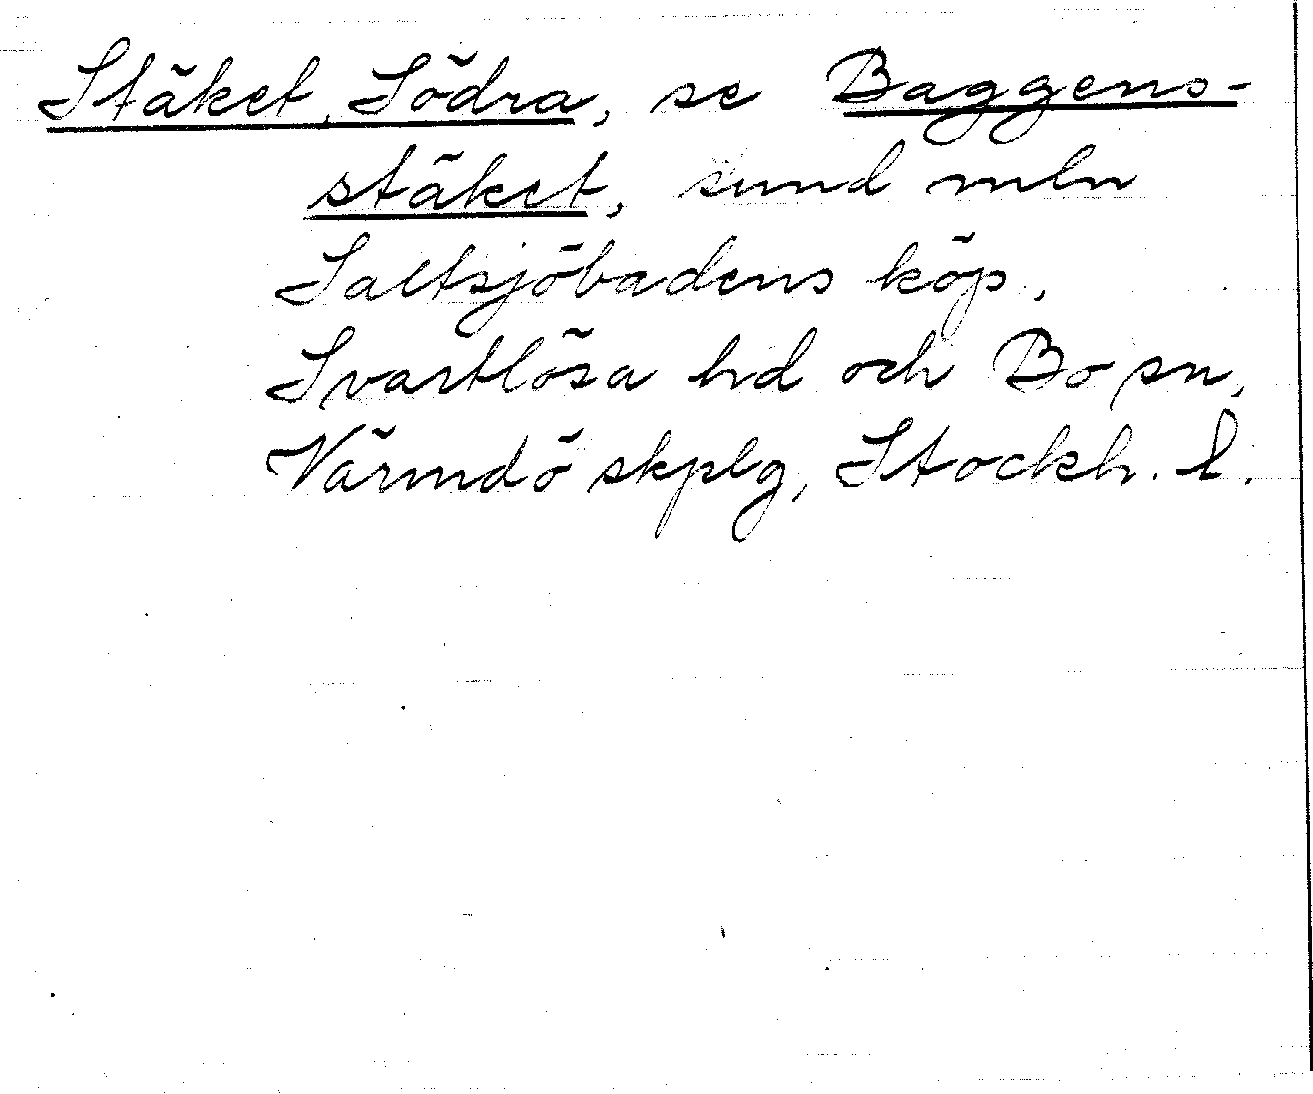 Stäket, Södra, se Baggens-
stäket, sund mln
Saltsjöbadens köp,
Svartlösa hd och Bo sn,
Värmdö skplg, Stockh. l.